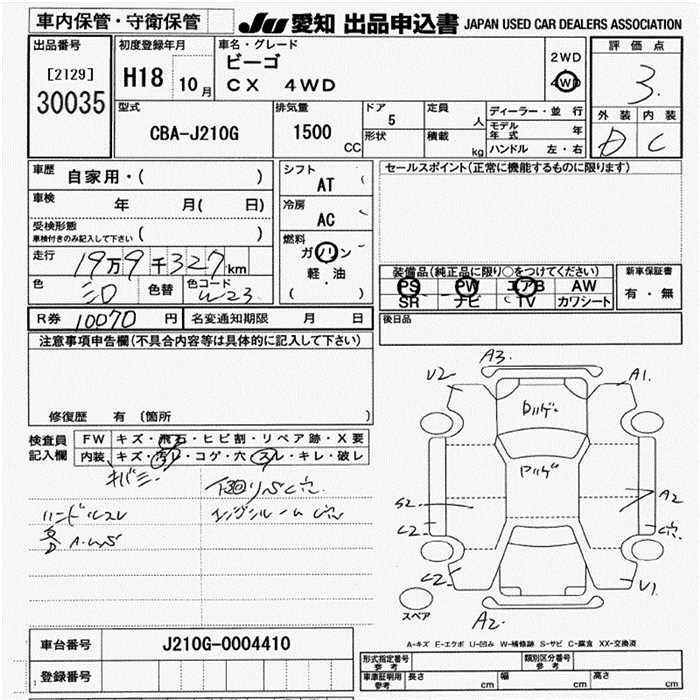 車内保管・守衛保管 JU 愛知 出品申込書 JAPAN USED CAR DEALERS ASSOCIATION
出品番号 初度登録年月 車名・グレード 評価点
[2129] ビーゴ 2WD
30035 H18 10月 CX 4WD 4WD 3.
型式 排気量 ドア 定員 ディーラー・並行 外装 内装
CBA-J210G 1500 CC 5 人 モデル年式 年 D C
形状 積載 kg ハンドル 左・右
車歴 自家用・( ) シフト AT セールスポイント(正常に機能するものに限ります)
車検 年 月( 日) 冷房 AC
受検形態 ( )
車検付きのみ記入して下さい
走行 19万9千327km 燃料 ガソリン 装備品(純正品に限り○をつけてください) 新車保証書
色 色替 色コード W23 軽・油 PS PW エアB AW 有・無
( ) SR ナビ TV カワシート
R券 10070 円 名変通知期限 月 日 後日品
注意事項申告欄(不具合内容等は具体的に記入して下さい)
修復歴 有 (箇所 )
検査員 FW キズ・飛石・ヒビ割・リペア跡・X要
記入欄 内装 キズ・汚レ・コゲ・穴・スレ・キレ・破レ
キバミ
下回りS
ハンドルスレ エンジンルーム
A3.
U2 A1.
S2 A2
C2
C2 U1
A2
スペア
A-キズ E-エクボ U-凹み W-補修跡 S-サビ C-腐食 XX-交換済
車台番号 J210G-0004410
登録番号
型式指定番号 参考 類別区分番号 参考
車庫証明用 参考 長さ cm 幅 cm 高さ cm